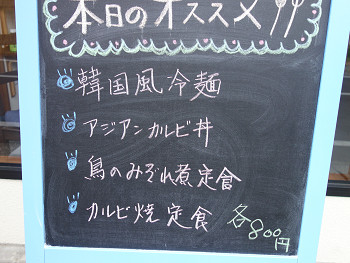 本日のオススメ
韓国風冷麺
アジアンカルビ丼
鳥のみぞれ煮定食
カルビ焼定食 各800円